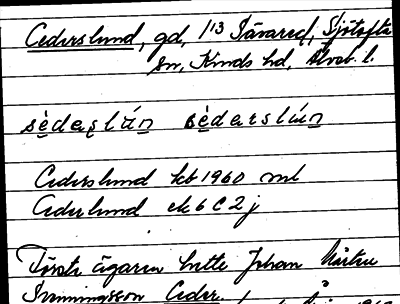 Cederslund, gd, 1/13 Tävared, Sjötofta
sn, Kinds hd, Älvsb. l.
sèdaʂlún sèdarslún
Cederslund kb 1960 ml
Cederlund ek 6 C 2 j
Första ägaren hette Johan Mårten
Ceder